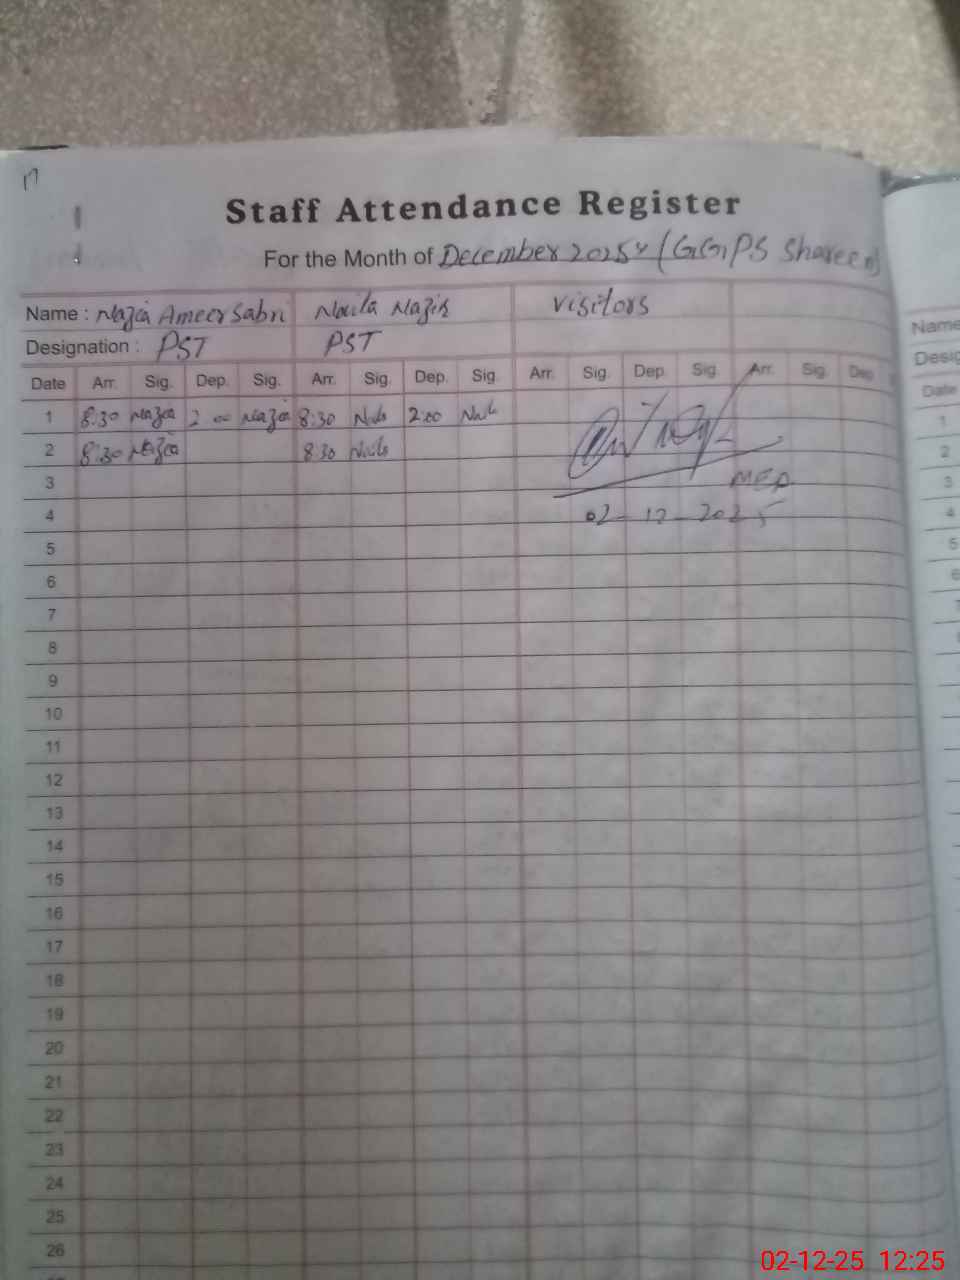 17
Staff Attendance Register
For the Month of December 2025 (GGPS Shareen)
Name : Nazia Ameer Sabri Naila Nazir visitors
Designation : PST PST
Date Arr. Sig. Dep. Sig. Arr. Sig. Dep. Sig. Arr. Sig. Dep. Sig. Arr. Sig. Dep
1 8:30 Nazia 2:00 Nazia 8:30 Naila 2:00 Naila
2 8:30 Nazia 8:30 Naila
3 MEA
4 02-12-2025
5
6
7
8
9
10
11
12
13
14
15
16
17
18
19
20
21
22
23
24
25
26
Name
Desig
Date
1
2
3
4
5
6
02-12-25 12:25